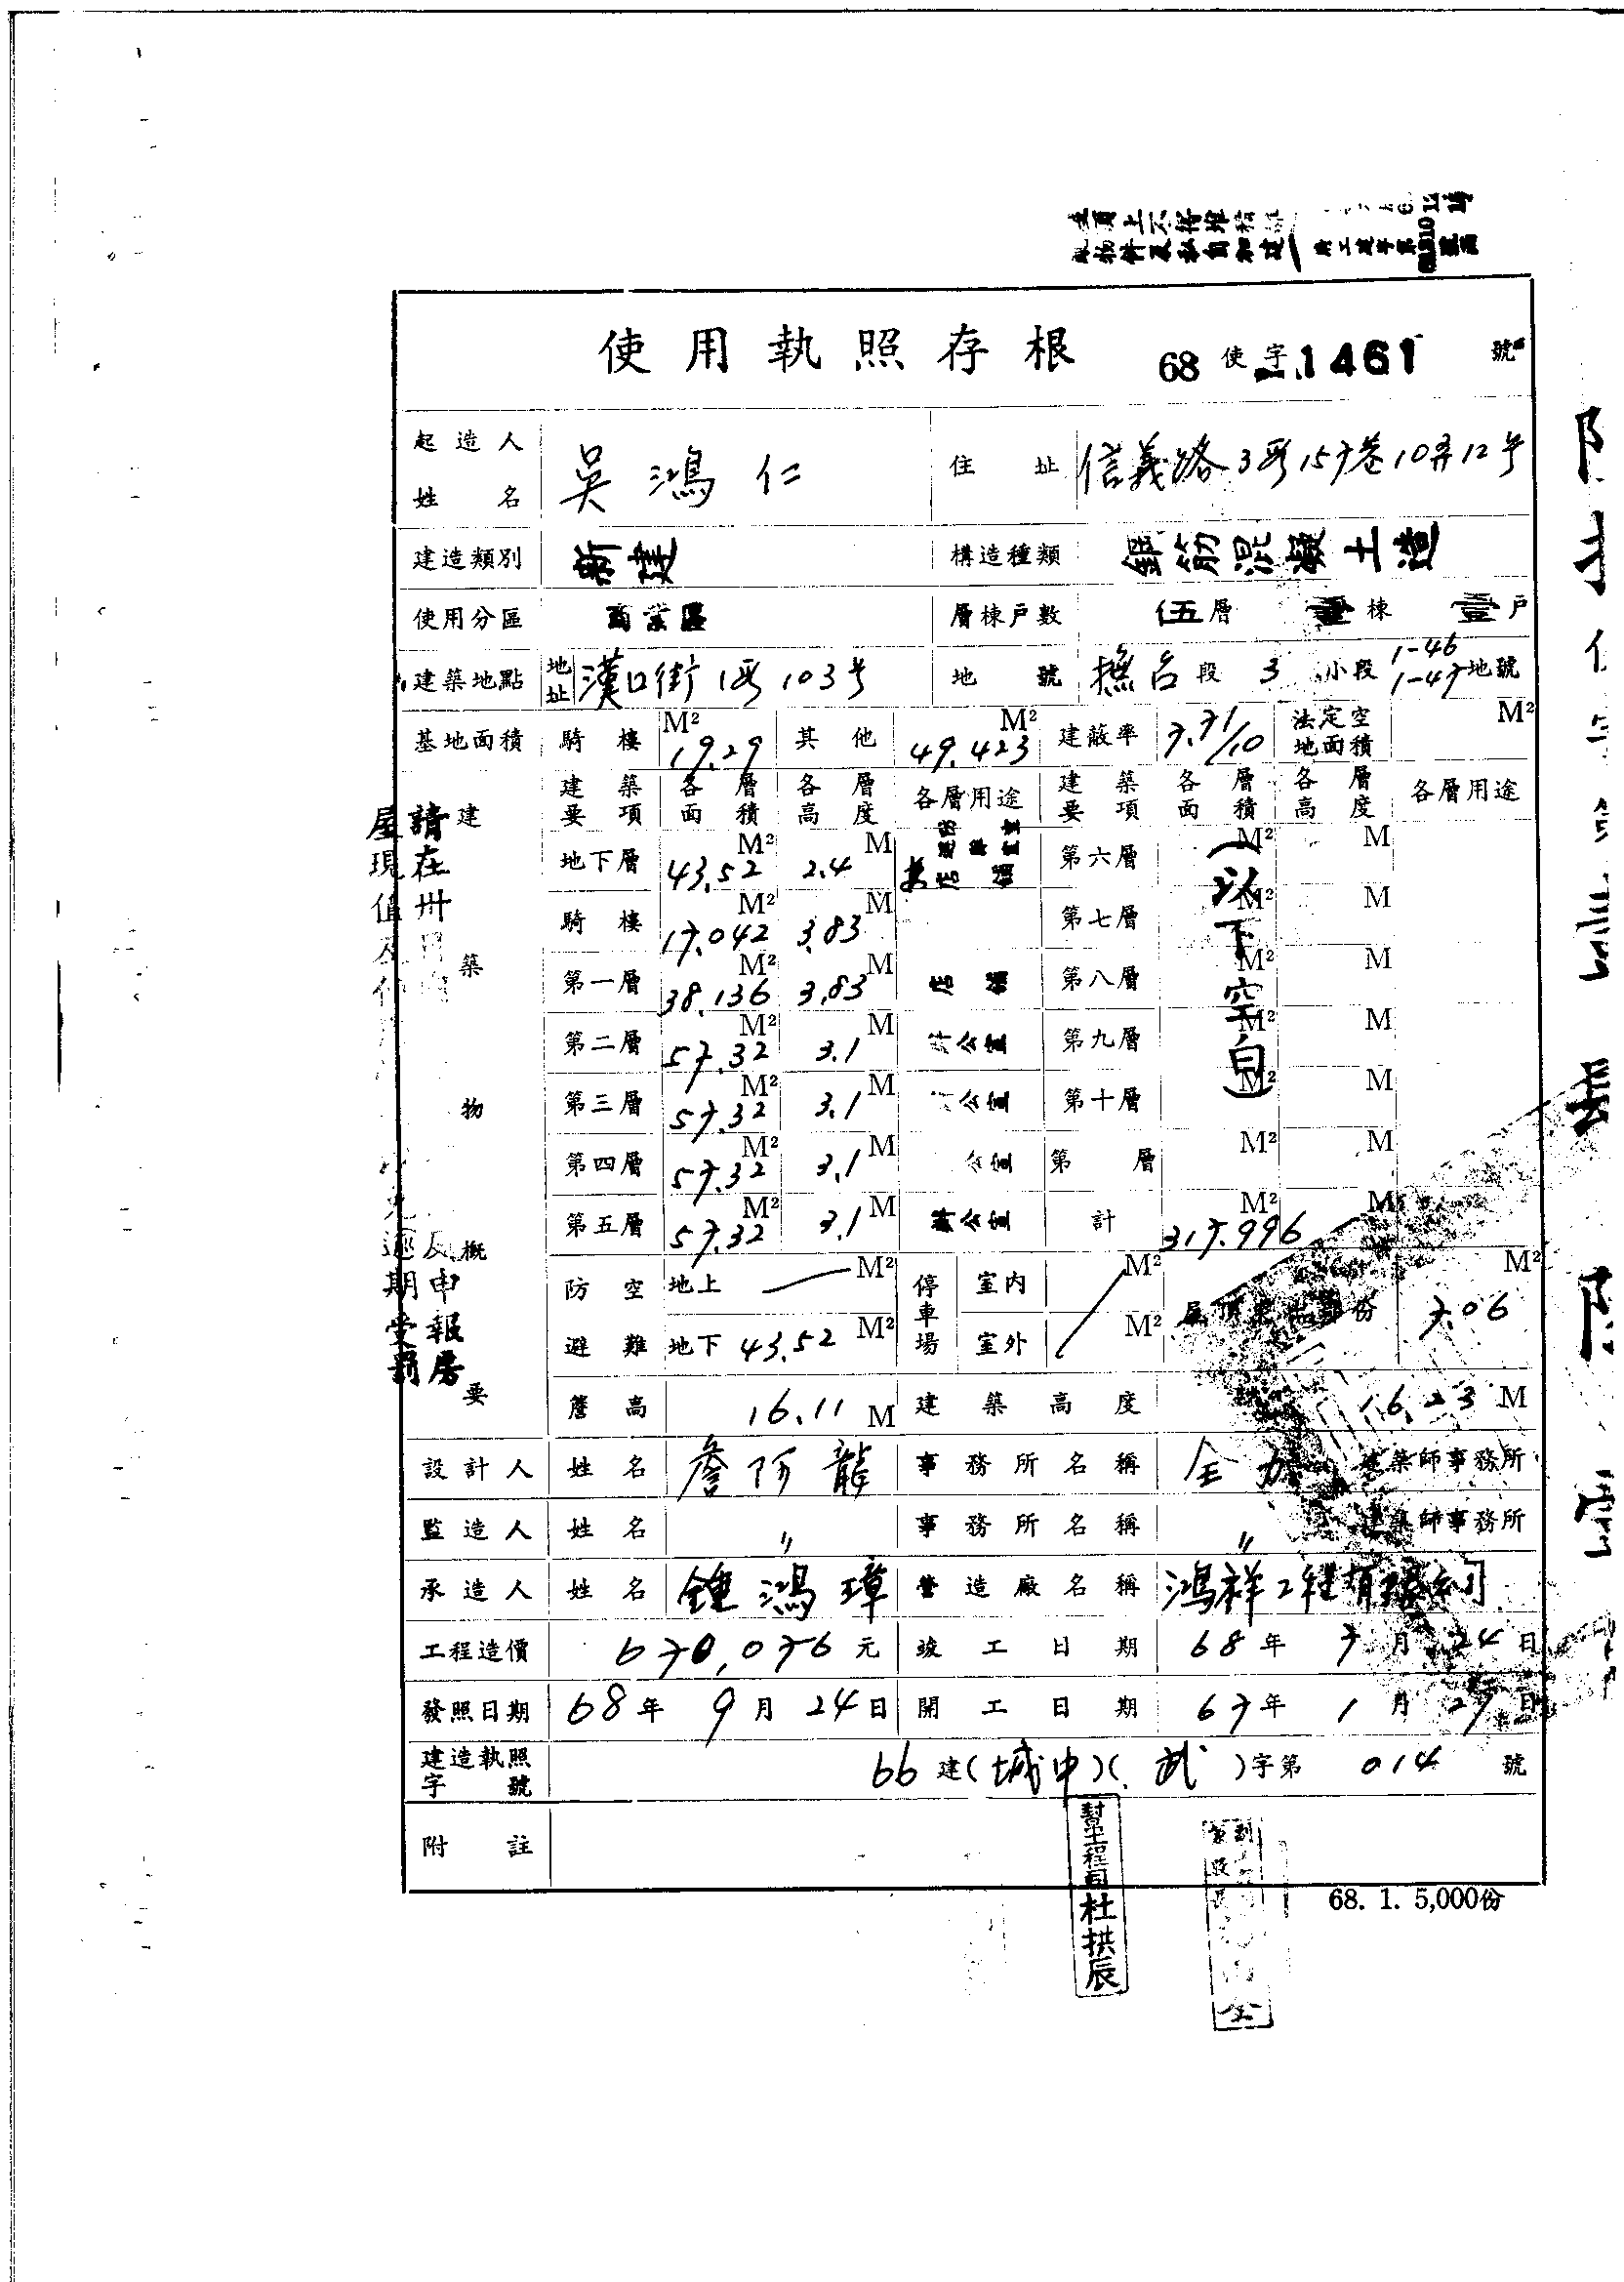 使用執照存根 68使字 1461 號
起造人姓名 吳鴻仁 住址 信義路3段157巷10弄12号
建造類別 新建 構造種類 鋼筋混凝土造
使用分區 商業區 層棟戶數 伍層 壹棟 壹戶
建築地點 地址 漢口街1段103号 地號 撫台段 3 小段 1-46 1-47 地號
基地面積 騎樓 19.29 M² 其他 49.423 M² 建蔽率 7.71/10 法定空地面積 M²
建築物概要
建築要項 各層面積 各層高度 各層用途 建築要項 各層面積 各層高度 各層用途
地下層 43.52 M² 2.4 M 店舖 第六層 M² M
騎樓 17.042 M² 3.83 M 第七層 M² M
第一層 38.136 M² 3.83 M 店舖 第八層 M² M
第二層 57.32 M² 3.1 M 辦公室 第九層 M² M
第三層 57.32 M² 3.1 M 公室 第十層 M² M
第四層 57.32 M² 3.1 M 公室 第 層 M² M
第五層 57.32 M² 3.1 M 辦公室 計 317.996 M² M
(以下空白)
防空避難 地上 M² 停車場 室內 M² 屋頂突出部份 7.06 M²
地下 43.52 M² 室外 M²
簷高 16.11 M 建築高度 16.23 M
設計人 姓名 詹阿龍 事務所名稱 全力 建築師事務所
監造人 姓名 〃 事務所名稱 〃 建築師事務所
承造人 姓名 鍾鴻璋 營造廠名稱 鴻祥工程有限公司
工程造價 670,076元 竣工日期 68年7月24日
發照日期 68年9月24日 開工日期 67年1月27日
建造執照字號 66建(城中)(武)字第 014 號
附註
68. 1. 5,000份
幫工程司杜拱辰
請在卅
申報房
屋現值及
逾期受罰